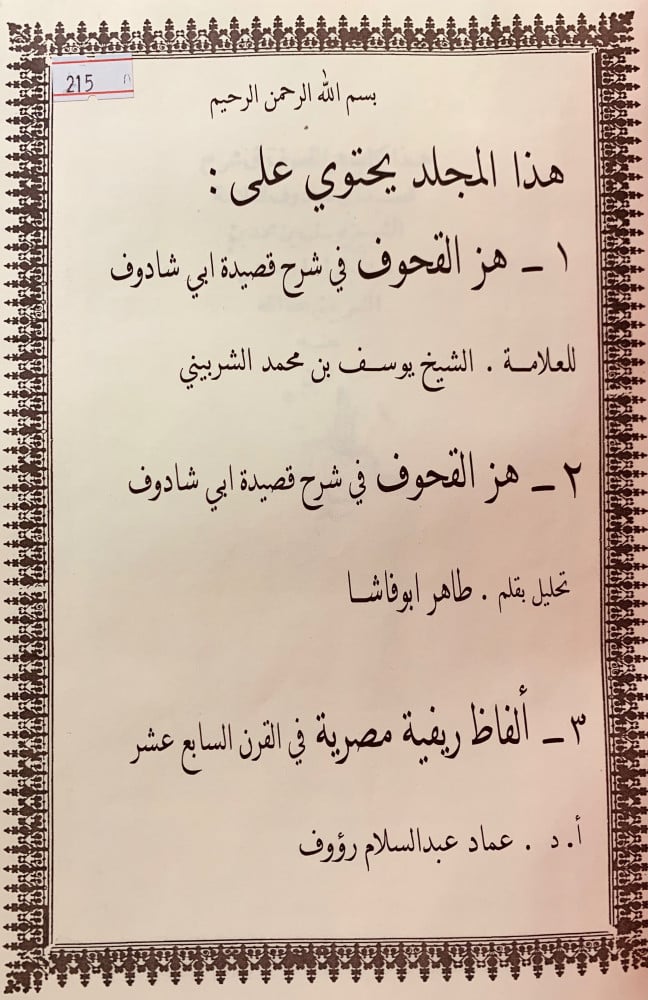 215
بسم الله الرحمن الرحيم
هذا المجلد يحتوي على :
١ ـ هز القحوف في شرح قصيدة ابي شادوف
للعلامة . الشيخ يوسف بن محمد الشربيني
٢ ـ هز القحوف في شرح قصيدة ابي شادوف
تحليل بقلم . طاهر ابوفاشا
٣ ـ ألفاظ ريفية مصرية في القرن السابع عشر
أ. د . عماد عبدالسلام رؤوف